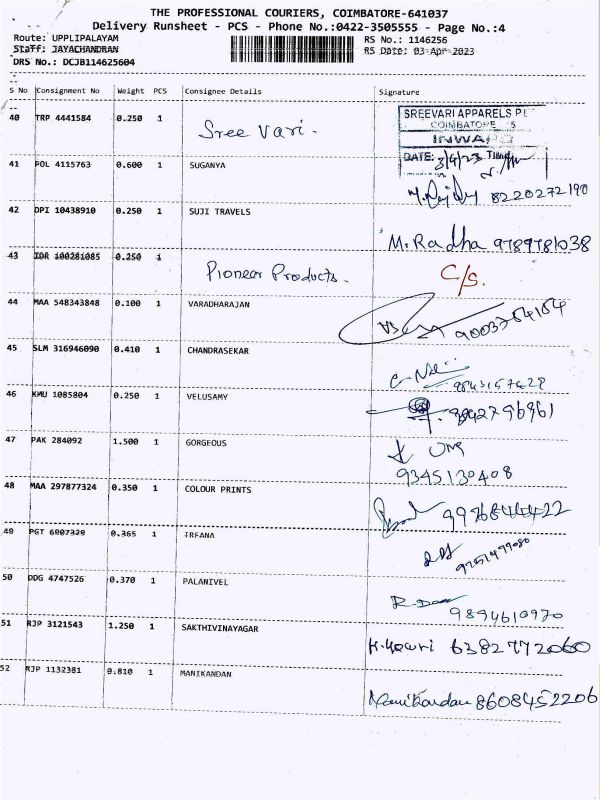 THE PROFESSIONAL COURIERS, COIMBATORE-641037
Delivery Runsheet - PCS - Phone No.:0422-3505555 - Page No.:4
Route: UPPLIPALAYAM RS No.: 1146256
Staff: JAYACHANDRAN RS Date: 03-Apr-2023
DRS No.: DCJB114625604
S No Consignment No Weight PCS Consignee Details Signature
40 TRP 4441584 0.250 1 Sree Vari.
SREEVARI APPARELS P
COIMBATORE 5
INWARD
DATE: 3/4/23 TIME
41 POL 4115763 0.600 1 SUGANYA 8220272190
42 DPI 10438910 0.250 1 SUJI TRAVELS M.Radha 9789781038
43 IDR 100281085 0.250 1 Pioneer Products. C/S.
44 MAA 548343848 0.100 1 VARADHARAJAN 9003754154
45 SLM 316946090 0.410 1 CHANDRASEKAR
46 KMU 1085804 0.250 1 VELUSAMY 9842796961
47 PAK 284092 1.500 1 GORGEOUS
9345130408
48 MAA 297877324 0.350 1 COLOUR PRINTS
49 PGT 6907320 0.365 1 IRFANA
50 DDG 4747526 0.370 1 PALANIVEL 9894610970
51 RJP 3121543 1.250 1 SAKTHIVINAYAGAR 6382772060
52 RJP 1132381 0.810 1 MANIKANDAN Manikandan 8608452206